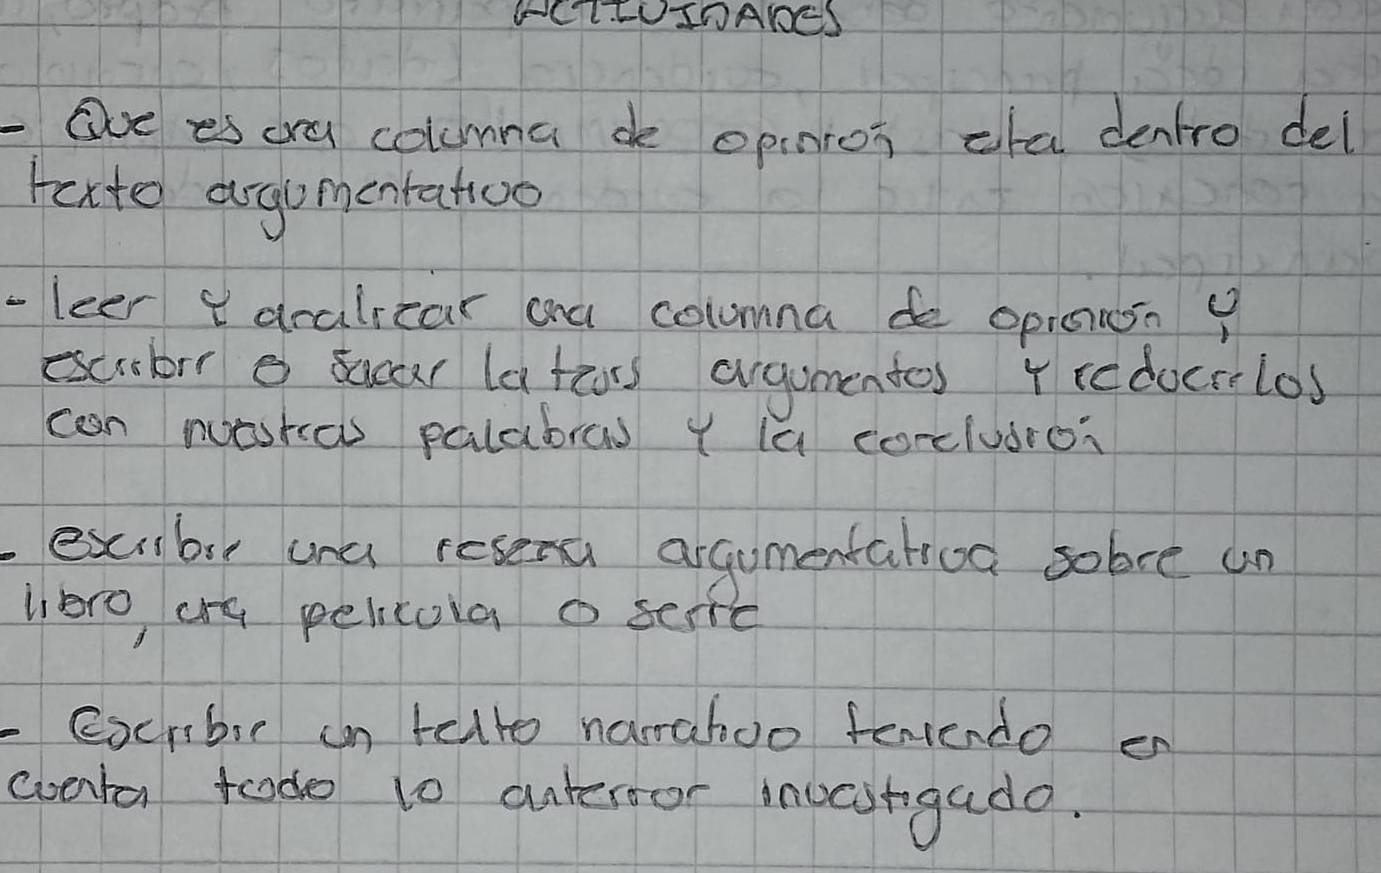 ACTIVIDADES
- Que es una columna de opinión eta dentro del
texto argumentativo
- leer y analizar una columna de opinión y
escribir o sacar la tesis argumentos y reducirlos
con nuestras palabras y la conclusión
- escribir una reseña argumentativa sobre un
libro, una pelicula o serie
- Escribir un texto narrativo teniendo en
cuenta todo lo anterior investigado.